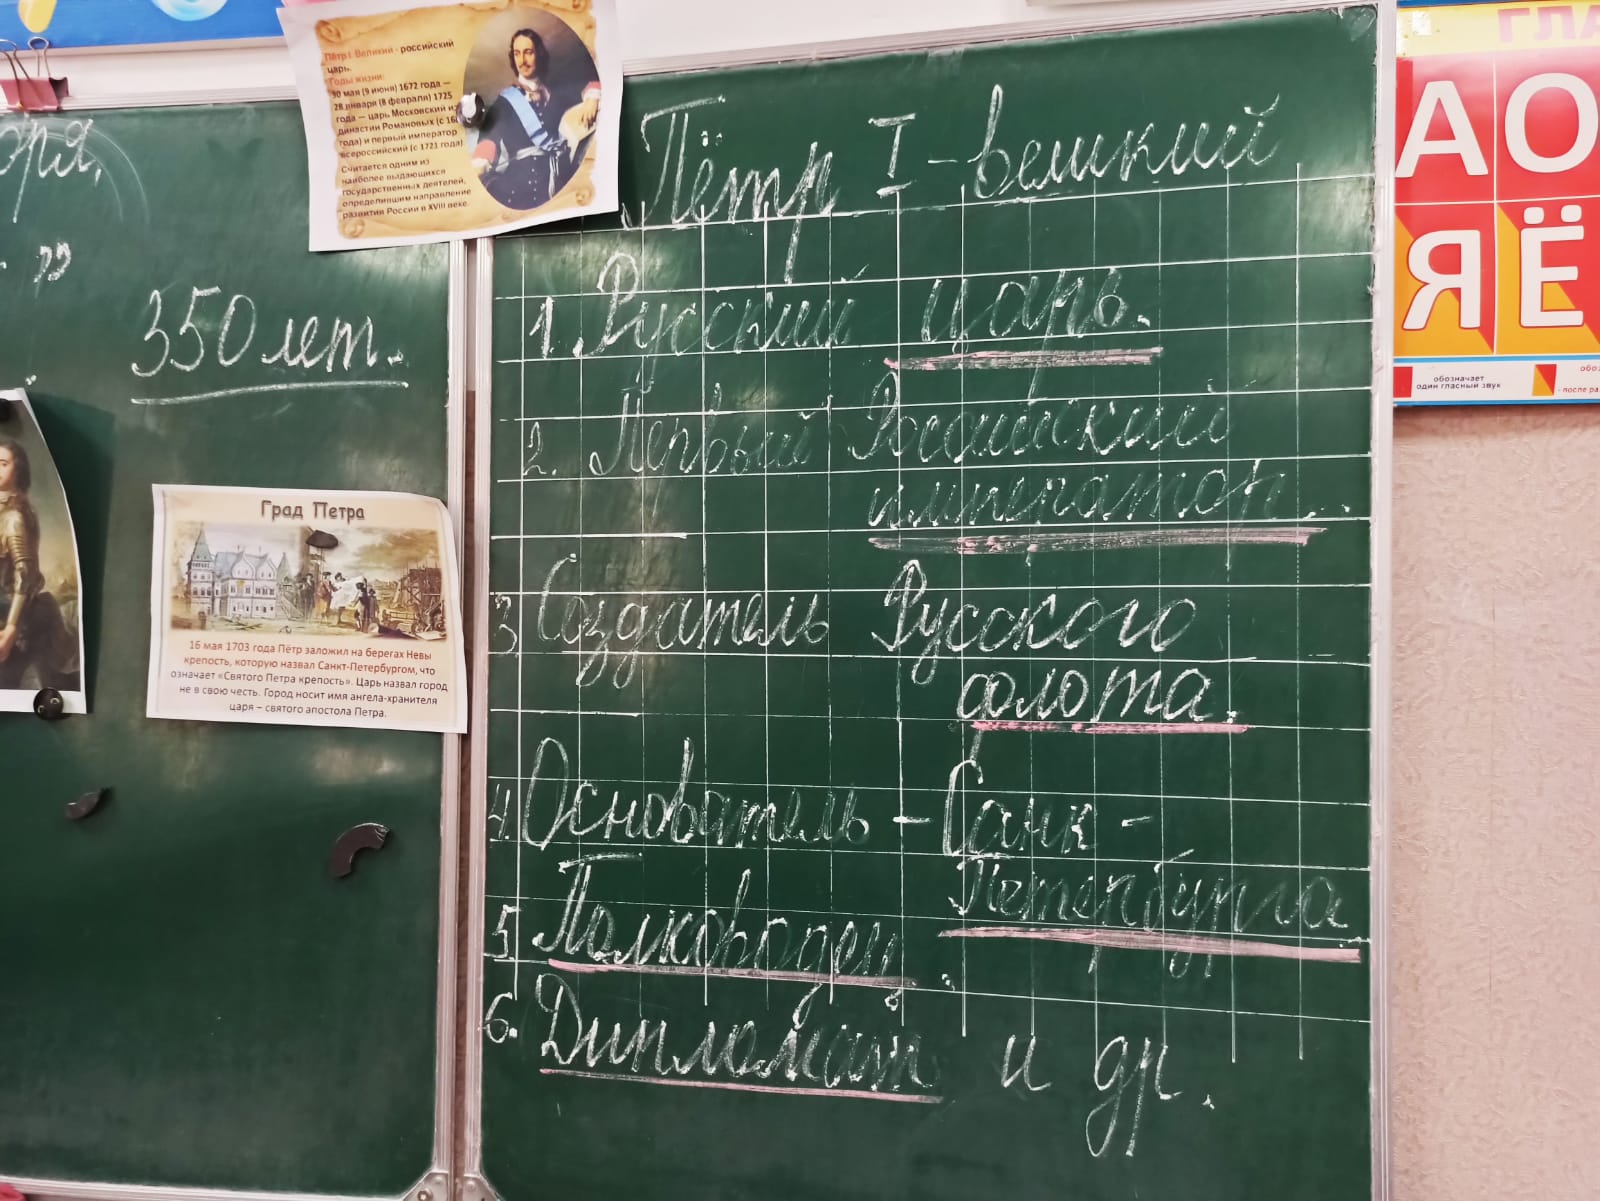 Пётр I Великий - российский
царь.
Годы жизни:
30 мая (9 июня) 1672 года —
28 января (8 февраля) 1725
года — царь Московский из
династии Романовых (с
года) и первый император
всероссийский (с 1721 года)
Считается одним из
наиболее выдающихся
государственных деятелей,
определившим направление
развития России в XVIII веке.
350 лет.
Град Петра
16 мая 1703 года Пётр заложил на берегах Невы
крепость, которую назвал Санкт-Петербургом, что
означает «Святого Петра крепость». Царь назвал город
не в свою честь. Город носит имя ангела-хранителя
царя – святого апостола Петра.
Пётр I - великий
1. Русский царь.
2. Первый Российский
император...
3. Создатель Русского
флота.
4. Основатель - Санк-
Петербурга
5. Полководец.
6. Дипломат и др.
ГЛА
А О
Я Ё
обозначает
один гласный звук
- после